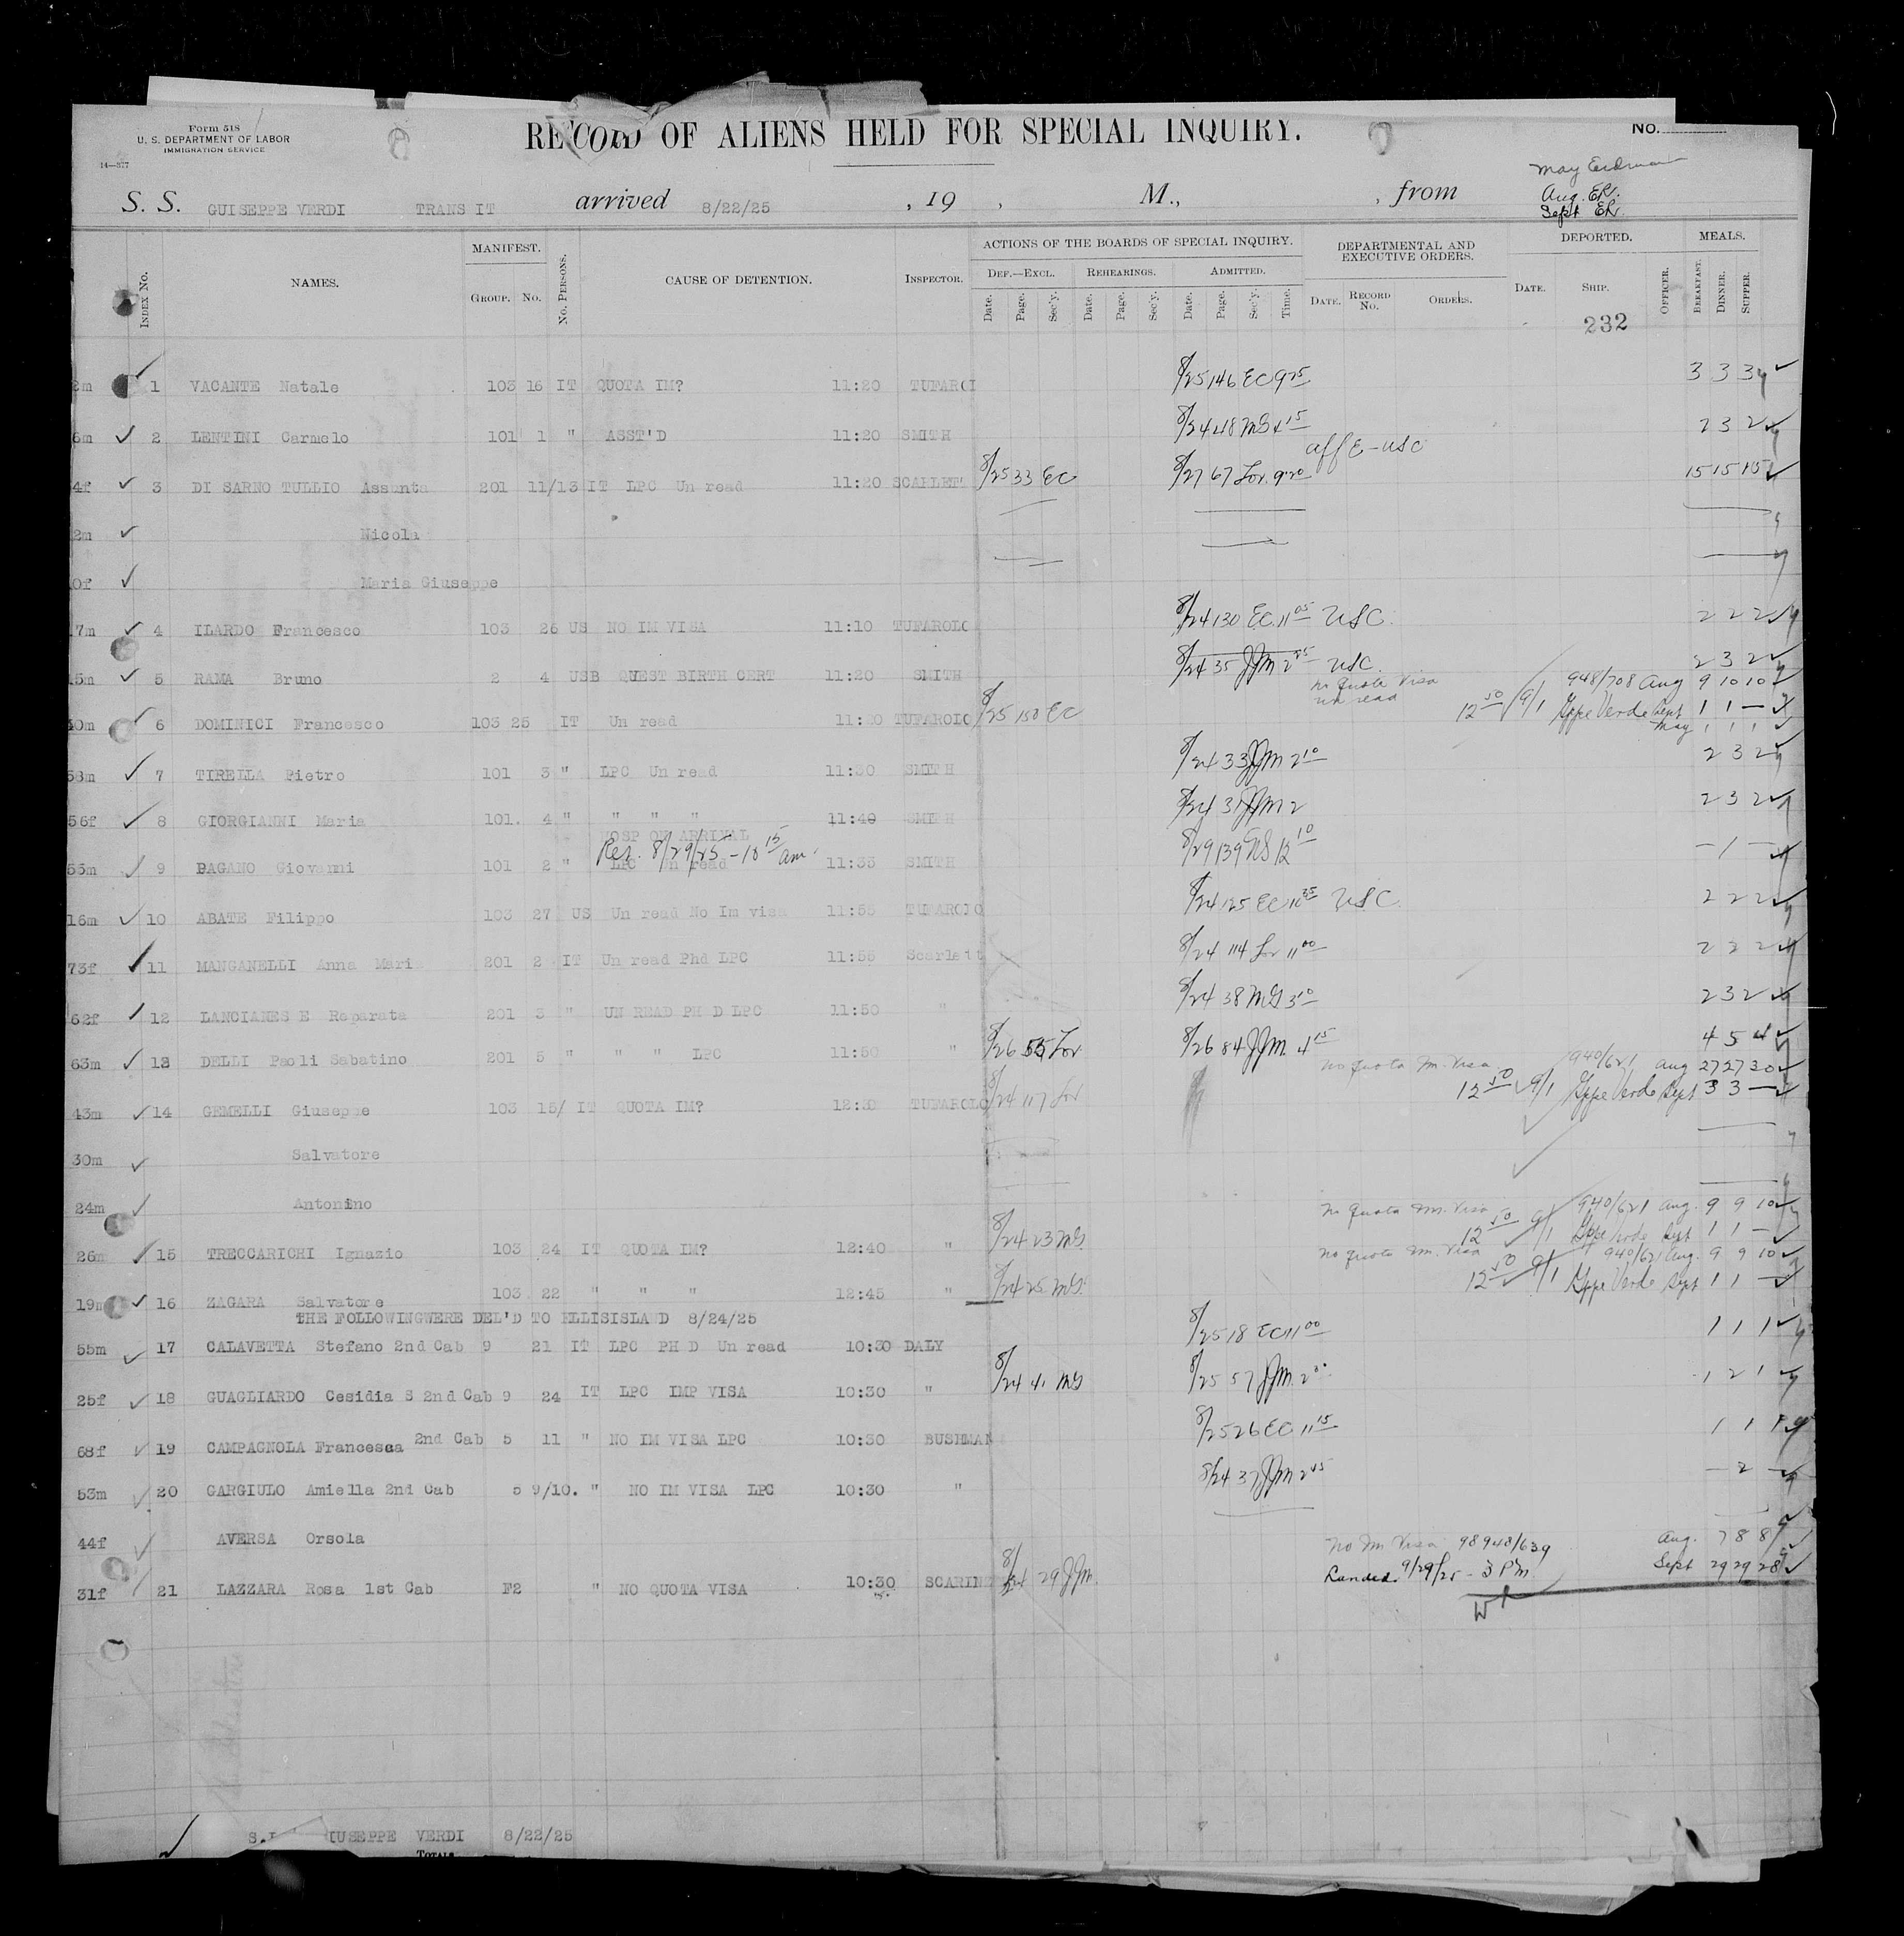 Form 518
U. S. DEPARTMENT OF LABOR
IMMIGRATION SERVICE
14—577
RECORD OF ALIENS HELD FOR SPECIAL INQUIRY.
NO.
S. S. GUISEPPE VERDI TRANSIT arrived 8/22/25 , 19 , M., , from
Aug. ER.
Sept ER.
INDEX No. NAMES. MANIFEST. GROUP. NO. No. PERSONS. CAUSE OF DETENTION. INSPECTOR. ACTIONS OF THE BOARDS OF SPECIAL INQUIRY. DEF.—EXCL. REHEARINGS. ADMITTED. DEPARTMENTAL AND EXECUTIVE ORDERS. DEPORTED. MEALS.
Date. Page. Sec'y. Date. Page. Sec'y. Date. Page. Sec'y. Time. DATE. RECORD No. ORDERS. DATE. SHIP. OFFICER. BREAKFAST. DINNER. SUPPER.
232
2m 1 VACANTE Natale 103 16 IT QUOTA IM? 11:20 8/25 146 EC 9 25 3 3 3
6m 2 LENTINI Carmelo 101 1 " ASST'D 11:20 SMITH 8/24 48 MG 4 15 2 3 2
aff E - USC
4f 3 DI SARNO TULLIO Assunta 201 11/13 IT LPC Un read 11:20 SCARLET 8/25 33 EC 8/27 67 Lor 9 20 15 15 15
2m Nicola
0f Maria Giuseppe
17m 4 ILARDO Francesco 103 26 US NO IM VISA 11:10 TUFAROLO 8/24 130 EC 11 05 USC. 2 2 2
15m 5 RAMA Bruno 2 4 USB QUEST BIRTH CERT 11:20 SMITH 8/24 35 JJM 2 35 USC. 2 3 2
no Quota Visa un read 948/708 Aug 9 10 10
40m 6 DOMINICI Francesco 103 25 IT Un read 11:20 TUFAROLO 8/25 150 EC 12 50 9/1 Gppe Verde Sept 1 1 —
May 1 1 1
58m 7 TIRELLA Pietro 101 3 " LPC Un read 11:30 SMITH 8/24 33 JJM 2 10 2 3 2
56f 8 GIORGIANNI Maria 101. 4 " " " " " 11:40 SMITH 8/24 31 JJM 2 2 3 2
HOSP ON ARRIVAL
Rel. 8/29/25 - 10 15 am.
55m 9 PAGANO Giovanni 101 2 " LPC Un read 11:35 SMITH 8/29 139 12 10 — 1 —
16m 10 ABATE Filippo 103 27 US Un read No Im visa 11:55 TUFAROLO 8/24 125 EC 10 35 USC 2 2 2
73f 11 MANGANELLI Anna Mari 201 2 IT Un read Phd LPC 11:55 Scarlett 8/24 114 Lor 11 00 2 2 2
62f 12 LANCIANES E Reparata 201 3 " UN READ PH D LPC 11:50 " 8/24 38 MG 3 10 2 3 2
63m 13 DELLI Paoli Sabatino 201 5 " " " LPC 11:50 " 8/26 55 Lor 8/26 84 JJM 4 15 4 5 4
no quota Im. Visa 940/621 Aug 27 27 30
43m 14 GEMELLI Giuseppe 103 15/ IT QUOTA IM? 12:30 TUFAROLO 8/24 117 Lor 12 50 9/1 Gppe Verde Sept 3 3 —
30m Salvatore
24m Antonino
no quota Im. Visa 940/621 Aug. 9 9 10
26m 15 TRECCARICHI Ignazio 103 24 IT QUOTA IM? 12:40 " 8/24 23 MG. 12 50 9/1 Gppe Verde Sept 1 1 —
no quota Im. Visa 940/621 Aug. 9 9 10
19m 16 ZAGARA Salvatore 103 22 " " " 12:45 " 8/24 25 MG. 12 50 9/1 Gppe Verde Sept 1 1 —
THE FOLLOWINGWERE DEL'D TO ELLISISLAND 8/24/25
55m 17 CALAVETTA Stefano 2nd Cab 9 21 IT LPC PH D Un read 10:30 DALY 8/25 18 EC 11 00 1 1 1
25f 18 GUAGLIARDO Cesidia S 2nd Cab 9 24 IT LPC IMP VISA 10:30 " 8/24 41 MG 8/25 57 JJM 2 1 2 1
68f 19 CAMPAGNOLA Francesca 2nd Cab 5 11 " NO IM VISA LPC 10:30 BUSHMAN 8/25 26 EC 11 15 1 1 1
53m 20 GARGIULO Amiella 2nd Cab 5 9/10. " NO IM VISA LPC 10:30 " 8/24 37 JJM 2 45 — 2 —
44f AVERSA Orsola
No Im Visa 98948/639 Aug. 7 8 8
31f 21 LAZZARA Rosa 1st Cab F2 " NO QUOTA VISA 10:30 8/24 29 JJM. Landed. 9/29/25 - 3 PM. Sept 29 29 28
IUSEPPE VERDI 8/22/25
TOTALS